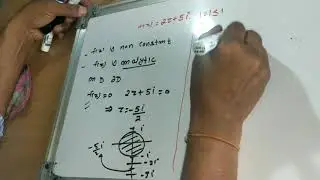 f(z) = 2z+5i |z|≤1
- f(z) is non constant
- f(z) is analytic
in D
f(z)=0 2z+5i=0
⇒ z = -5i/2
i
-i
-2i
-3i
-5i/2